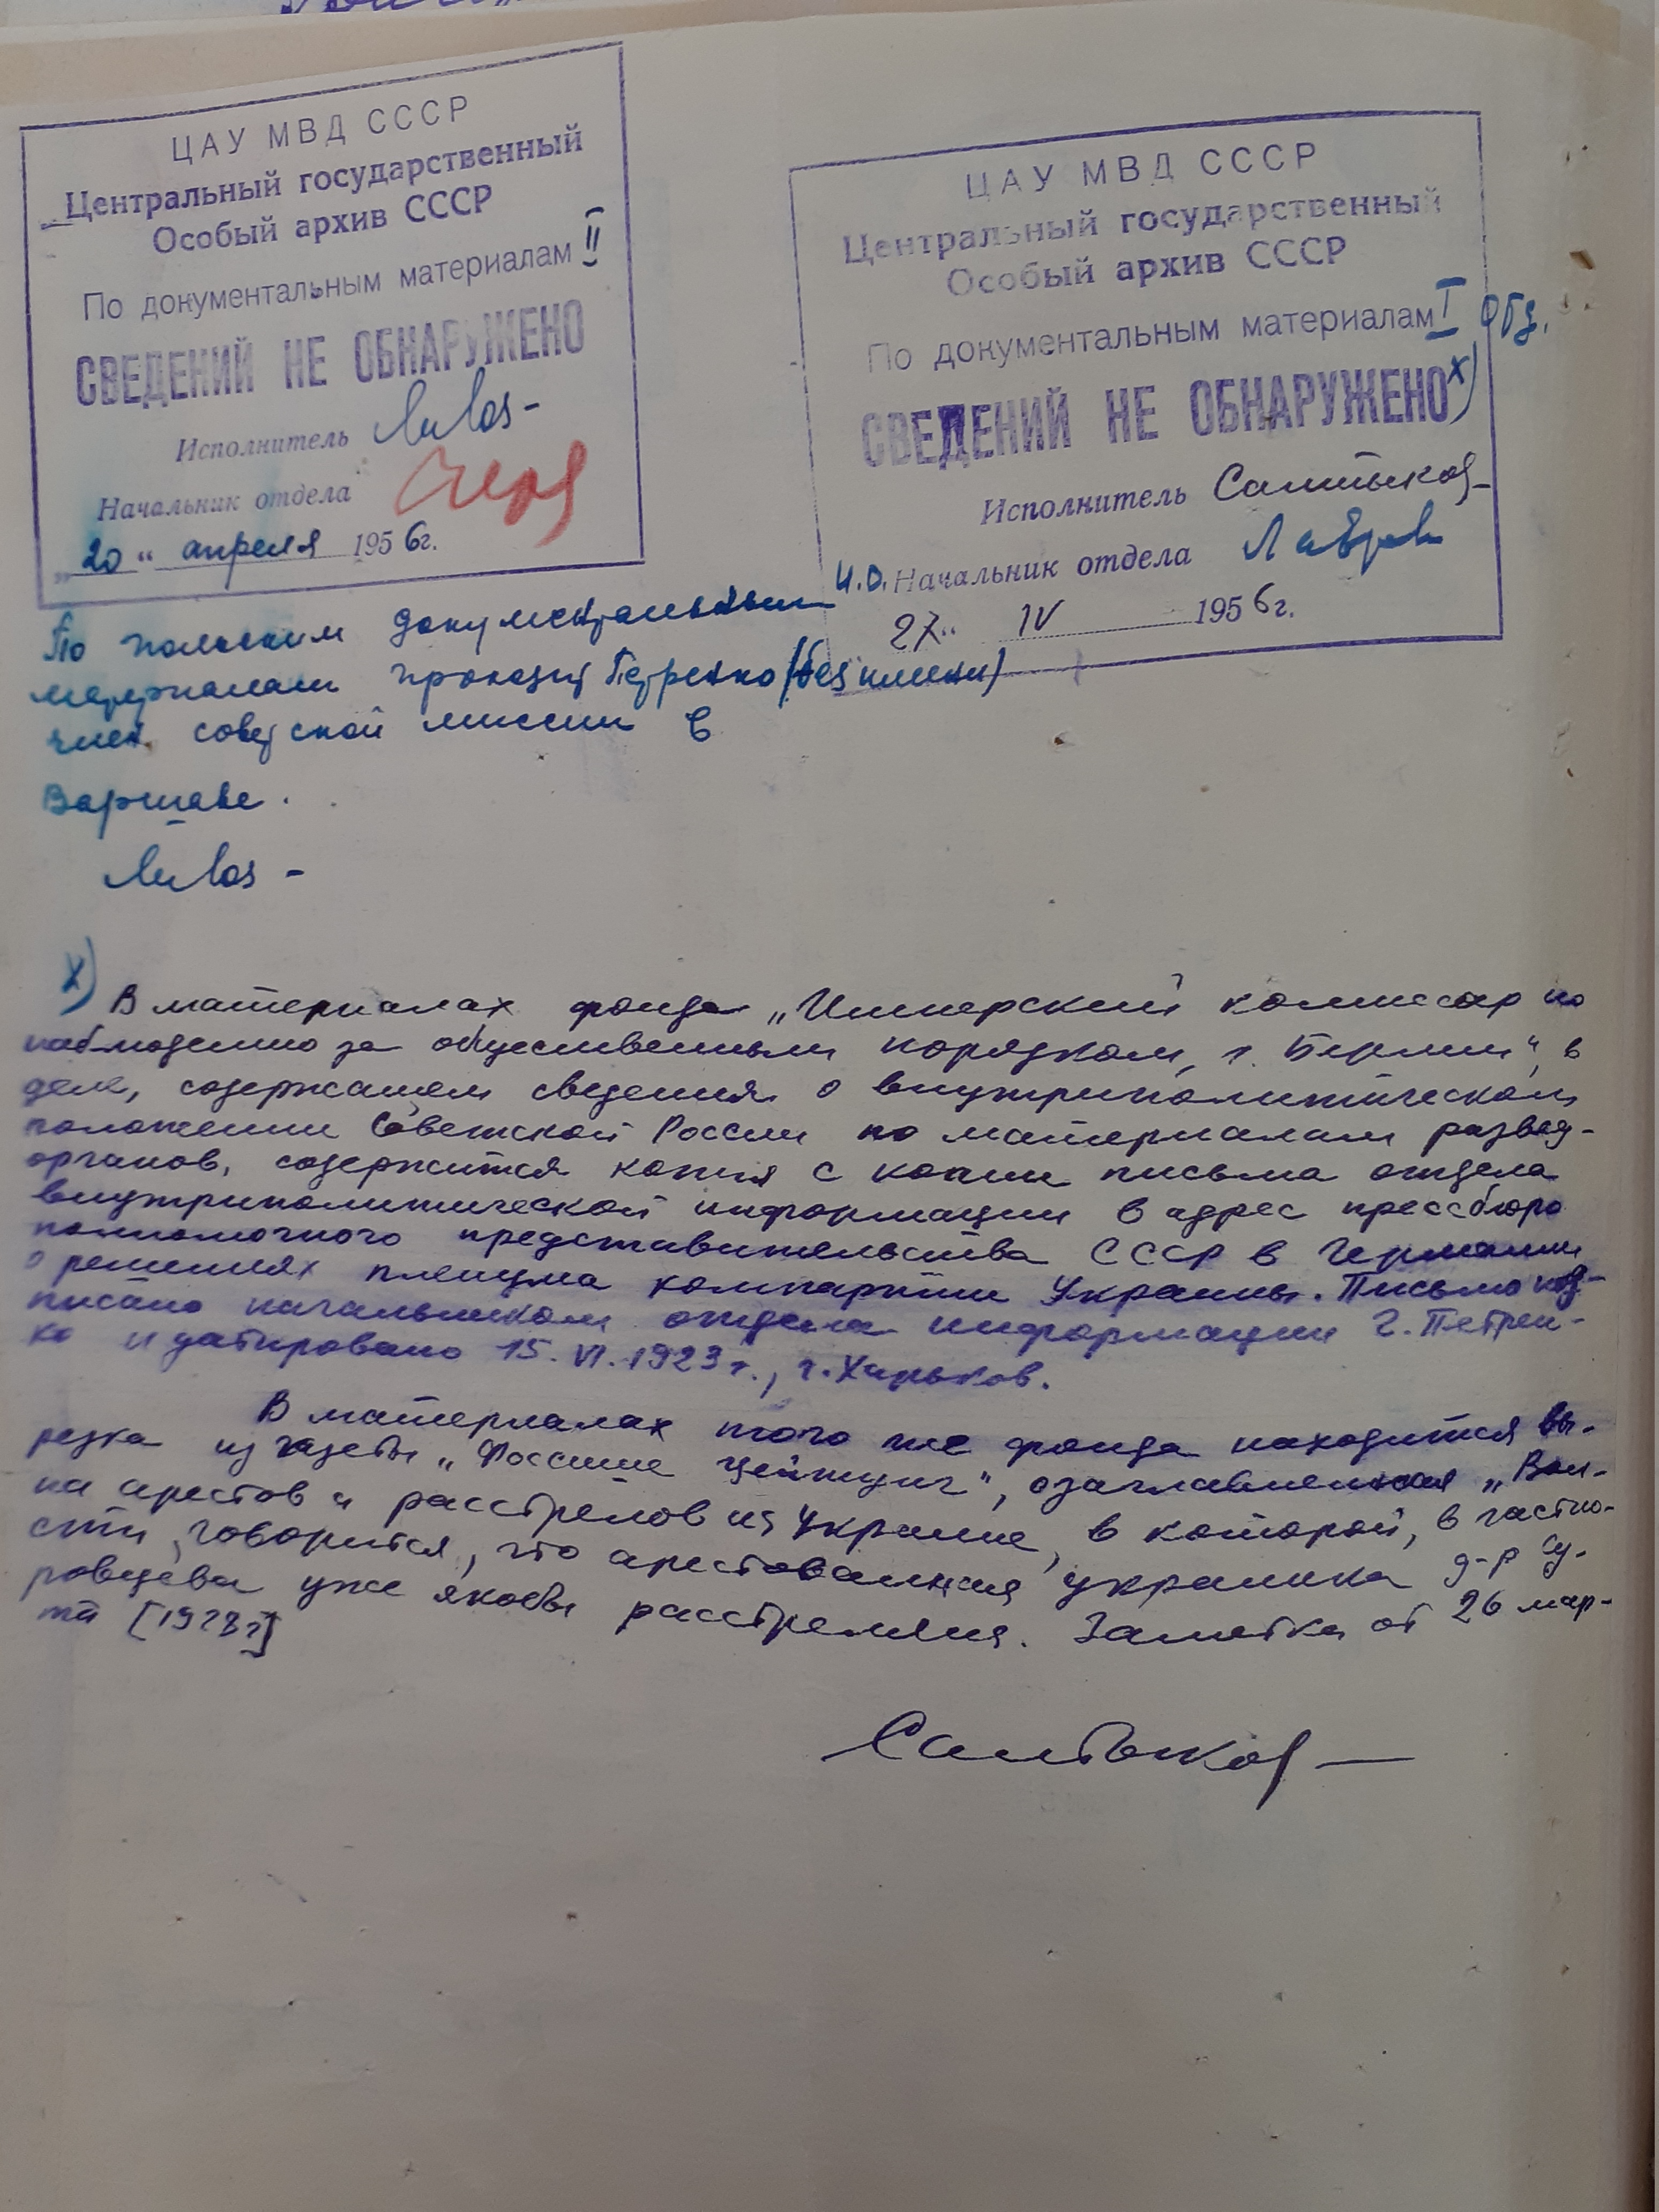 ЦАУ МВД СССР
Центральный государственный
Особый архив СССР
По документальным материалам II
СВЕДЕНИЙ НЕ ОБНАРУЖЕНО
Исполнитель
Начальник отдела
„20“ апреля 1956г.
ЦАУ МВД СССР
Центральный государственный
Особый архив СССР
По документальным материалам I отд.
СВЕДЕНИЙ НЕ ОБНАРУЖЕНО х)
Исполнитель Салтыков
И.О. Начальник отдела Лавров
27“ IV 1956г.
По польским документальным
материалам проходит Петренко (без имени)
член советской миссии в
Варшаве.
х) В материалах фонда „Имперский комиссар по
наблюдению за общественным порядком, г. Берлин“, в
деле, содержащем сведения о внутриполитическом
положении Советской России по материалам развед-
органов, содержится копия с копии письма отдела
внутриполитической информации в адрес прессбюро
полномочного представительства СССР в Германии
о решениях пленума компартии Украины. Письмо под-
писано начальником отдела информации Г. Петрен-
ко и датировано 15.VI.1923 г., г. Харьков.
В материалах того же фонда находится вы-
резка из газеты „Фоссише Цейтунг“, озаглавленная „Вол-
на арестов и расстрелов на Украине, в которой, в частно-
сти, говорится, что арестованная украинка д-р Су-
ровцева уже якобы расстреляна. Заметка от 26 мар-
та [1928 г]
Салтыков